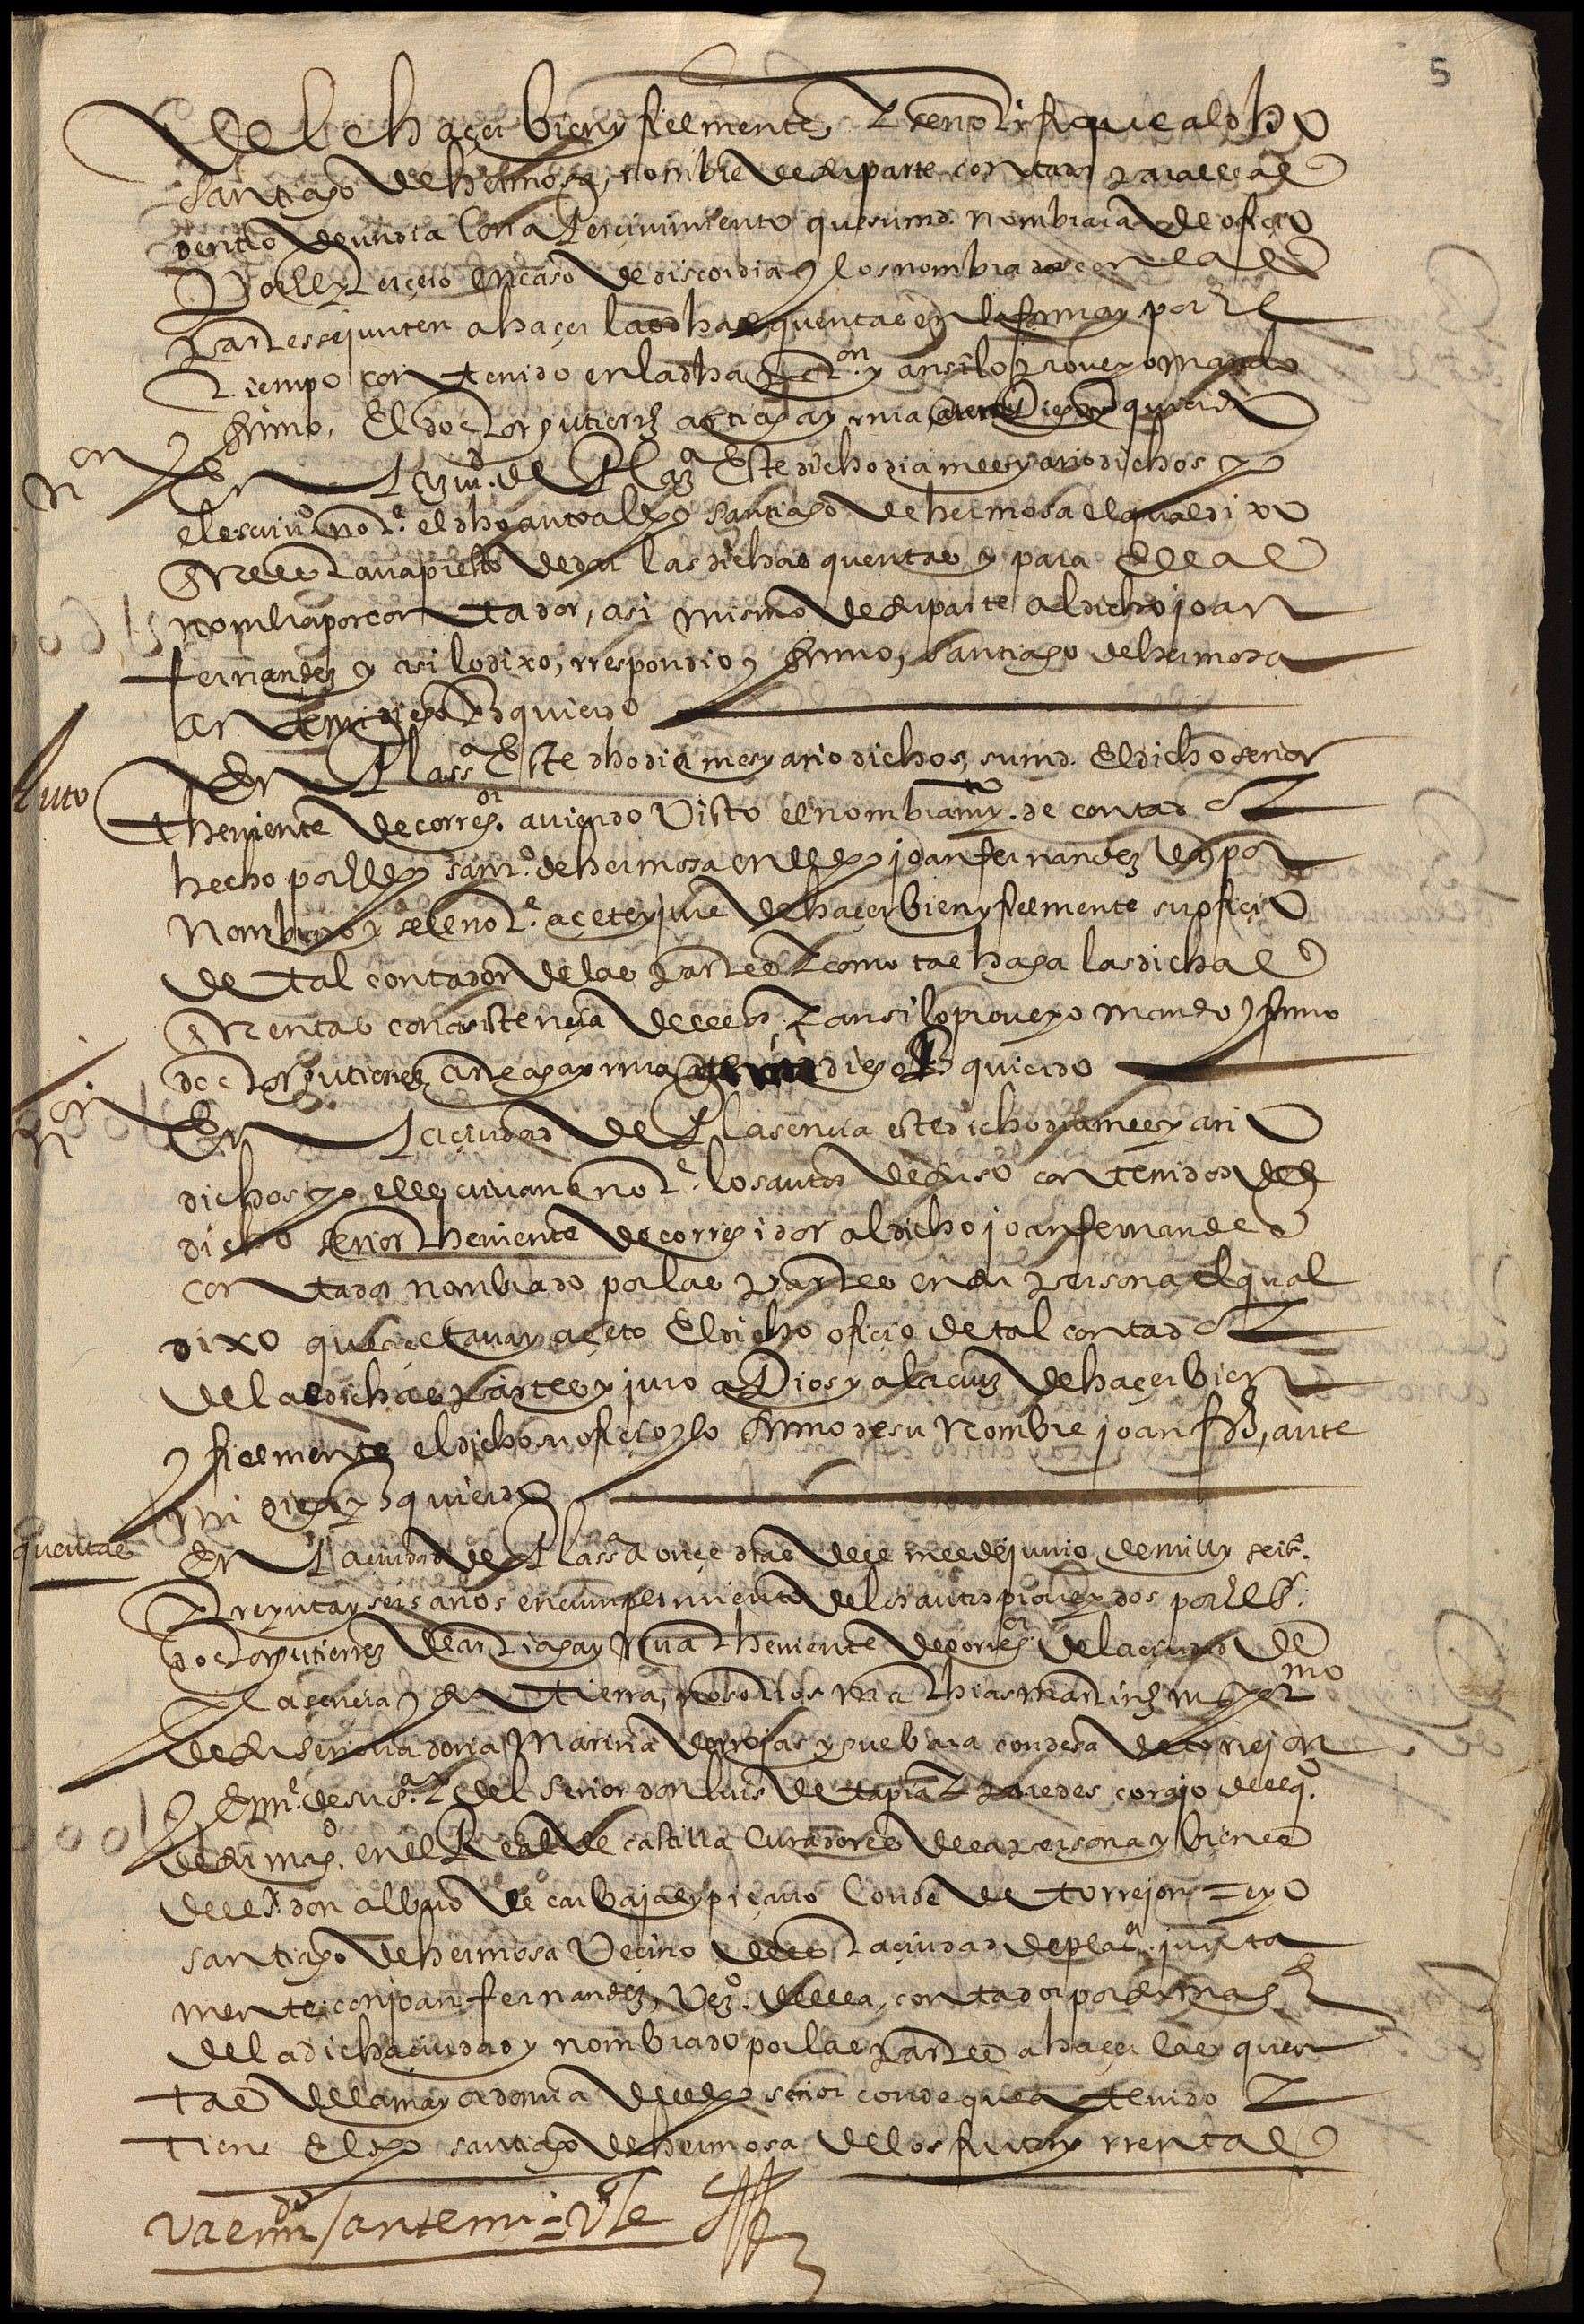 5
de le haçer bien y fielmente, y se notifique al dho
santiago de hermosa, nombre de su parte contador para ellas
dentro de un dia con aperçivimiento que su md. nombrara de ofiçio
por el y terçero en caso de discordia y los nombrados con las
partes se junten a haçer las dhas quentas en la forma y por el
tiempo contenido en la dha petⁿ. y ansi lo proveyo mando
y firmo, El doctor gutierrz artiaga y rrua ante mi diego yzquierdo
non
En la çiud. de Plaza Este dicho dia mes y año dichos yo
el escriuº notᵉ. el dho auto al dho santiago de hermosa el qual dixo
que esta presto de dar las dichas quentas y para ellas
nombra por contador, asi mismo de su parte al dicho joan
fernandez y asi lo dixo, rrespondio y firmo, santiago de hermosa
ante mi diego yzquierdo
Auto
En Plassa Este dho dia mes y año dichos, su md. El dicho señor
theniente de correg.or aviendo visto el nombramyº. de contador
hecho por el dho santº. de hermosa en el dho joan fernandez le hubo por
nombrado y se le notᵉ. açete y jure de haçer bien y fielmente su ofiçio
de tal contador de las partes y como tal haga las dichas
quentas con asistençia dellos y ansi lo proveyo mando y firmo
doctor gutierrez arteaga y rrua ante mi diego yzquierdo
non
En la çiudad de Plasençia este dicho dia mes y año
dichos yo el escrivano notᵉ. los autos de suso contenidos del
dicho señor theniente de corregidor al dicho joan fernandez
contador nombrado por las partes en su persona el qual
dixo que açetava y açeto El dicho ofiçio de tal contador
de las dichas partes y juro a Dios y a la cruz de haçer bien
y fielmente el dicho su ofiçio y lo firmo de su nombre joan frz, ante
mi diego yzquierdo
quentas
En la çiudad de Plassa a onçe dias del mes de junio de mill y seisº.
y treynta y seis años en cumplimiento de los autos proveydos por el sʳ.
doctor gutierrez de artiaga y Rrua theniente de correg.or de la çiudad de
Plasençia y su tierra, nosotros mathias martinz
de su señoria doña Marina de rrojas y guebara condesa de torrejon
y en nᵉ. de su sª. y del señor don luis de tapia y paredes corajo del cº.
de su magᵈ. en el Real de castilla curadores de la persona y bienes
del sʳ. don albaro de carbajal y piçarro Conde de torrejon = e yo
santiago de hermosa veçino desta çiudad de plaª. junta
mente con joan fernandez, vezº. della, contador por su magᵈ
de la dicha çiudad y nombrado por las partes a haçer las quen
tas de la mayordomia del dho señor conde que a tenido y
tiene El dho santiago de hermosa de los frutos y rrentas
va enmdº / ante mi = Vᵉ